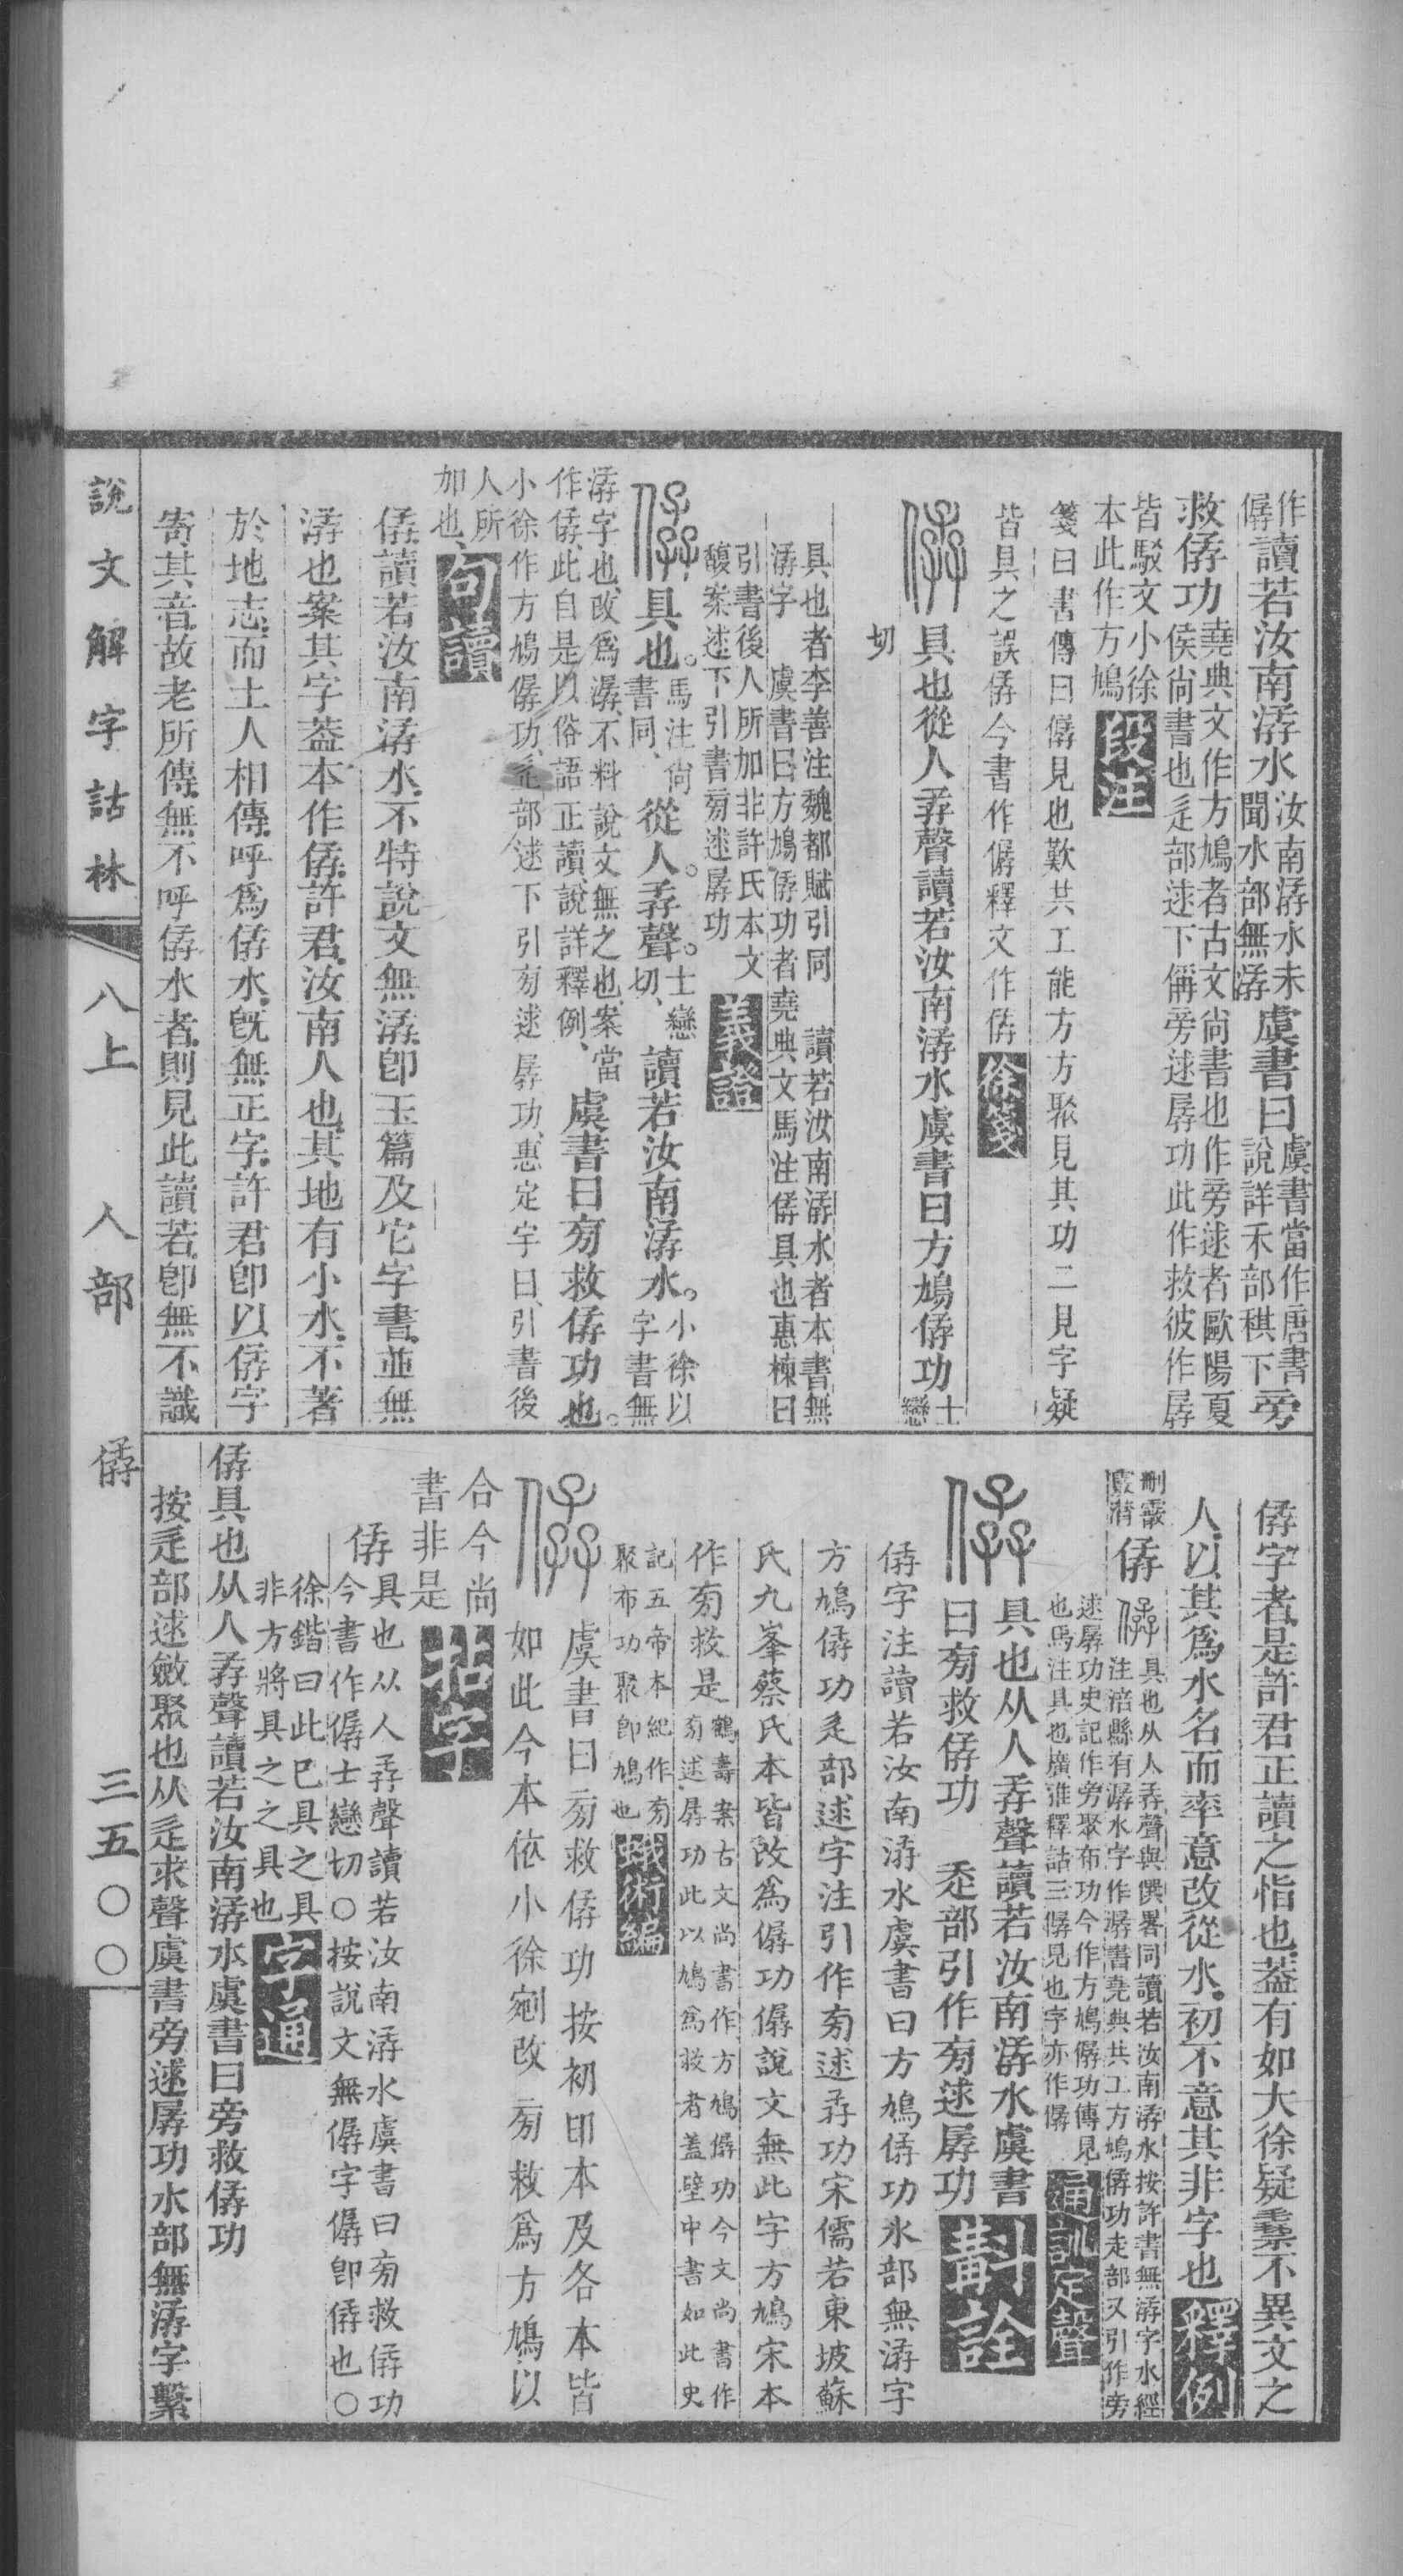 作僝讀若汝南潺水汝南潺水未聞水部無潺虞書曰虞書當作唐書說詳禾部稘下旁
救孱功堯典文作方鳩者古文尚書也作旁逑者歐陽夏侯尚書也辵部逑下偁旁逑孱功此作救彼作孱
皆駁文小徐本此作方鳩段注
箋曰書傳曰僝見也歎共工能方方聚見其功二見字疑
皆具之誤孱今書作僝釋文作孱徐箋
具也從人孨聲讀若汝南潺水虞書曰方鳩孱功士戀
切
具也者李善注魏都賦引同 讀若汝南潺水者本書無
潺字 虞書曰方鳩孱功者堯典文馬注孱具也惠棟曰
引書後人所加非許氏本文
馥案逑下引書旁逑孱功義證
具也。馬注尚書同、從人。孨聲。士戀切、讀若汝南潺水。小徐以字書無
潺字也、改爲潺、不料說文無之也、案當作孱、此自是以俗語正讀、說詳釋例、虞書曰旁救孱功也。
小徐作方鳩僝功、辵部逑下引旁逑孱功、惠定宇曰、引書後
人所加也、句讀
孱讀若汝南潺水、不特說文無潺、卽玉篇及它字書、並無
潺也、案其字蓋本作孱、許君、汝南人也、其地有小水、不著
於地志、而土人相傳、呼爲孱水、旣無正字、許君卽以孱字
寄其音、故老所傳、無不呼孱水者、則見此讀若、卽無不識
孱字者、是許君正讀之恉也、蓋有如大徐疑纍不異文之
人、以其爲水名而率意改從水、初不意其非字也釋例
孱具也从人孨聲與僎畧同讀若汝南潺水按許書無潺字水經注涪縣有潺水字作潺書堯典共工方鳩孱功辵部又引作旁
逑孱功史記作旁聚布功今作方鳩僝功傳見也馬注具也廣雅釋詁三僝見也字亦作僝通訓定聲
具也从人孨聲讀若汝南潺水虞書
曰旁救孱功 辵部引作旁逑孱功斠詮
孱字注讀若汝南潺水虞書曰方鳩孱功水部無潺字
方鳩孱功辵部逑字注引作旁逑孨功宋儒若東坡蘇
氏九峯蔡氏本皆改爲僝功僝說文無此字方鳩宋本
作旁救是鶴壽案古文尚書作方鳩僝功今文尚書作旁逑孱功此以鳩爲救者蓋壁中書如此史
記五帝本紀作旁聚布功聚卽鳩也蛾術編
虞書曰旁救孱功按初印本及各本皆
如此今本依小徐剜改旁救爲方鳩以
合今尚
書非是
孱具也从人孨聲讀若汝南潺水虞書曰旁救孱功
今書作僝士戀切○按說文無僝字僝卽孱也○
徐鍇曰此已具之具
非方將具之之具也字通
孱具也从人孨聲讀若汝南潺水虞書曰旁救孱功
按辵部逑斂聚也从辵求聲虞書旁逑孱功水部無潺字繫
說文解字詁林 八上 人部 孱 三五〇〇